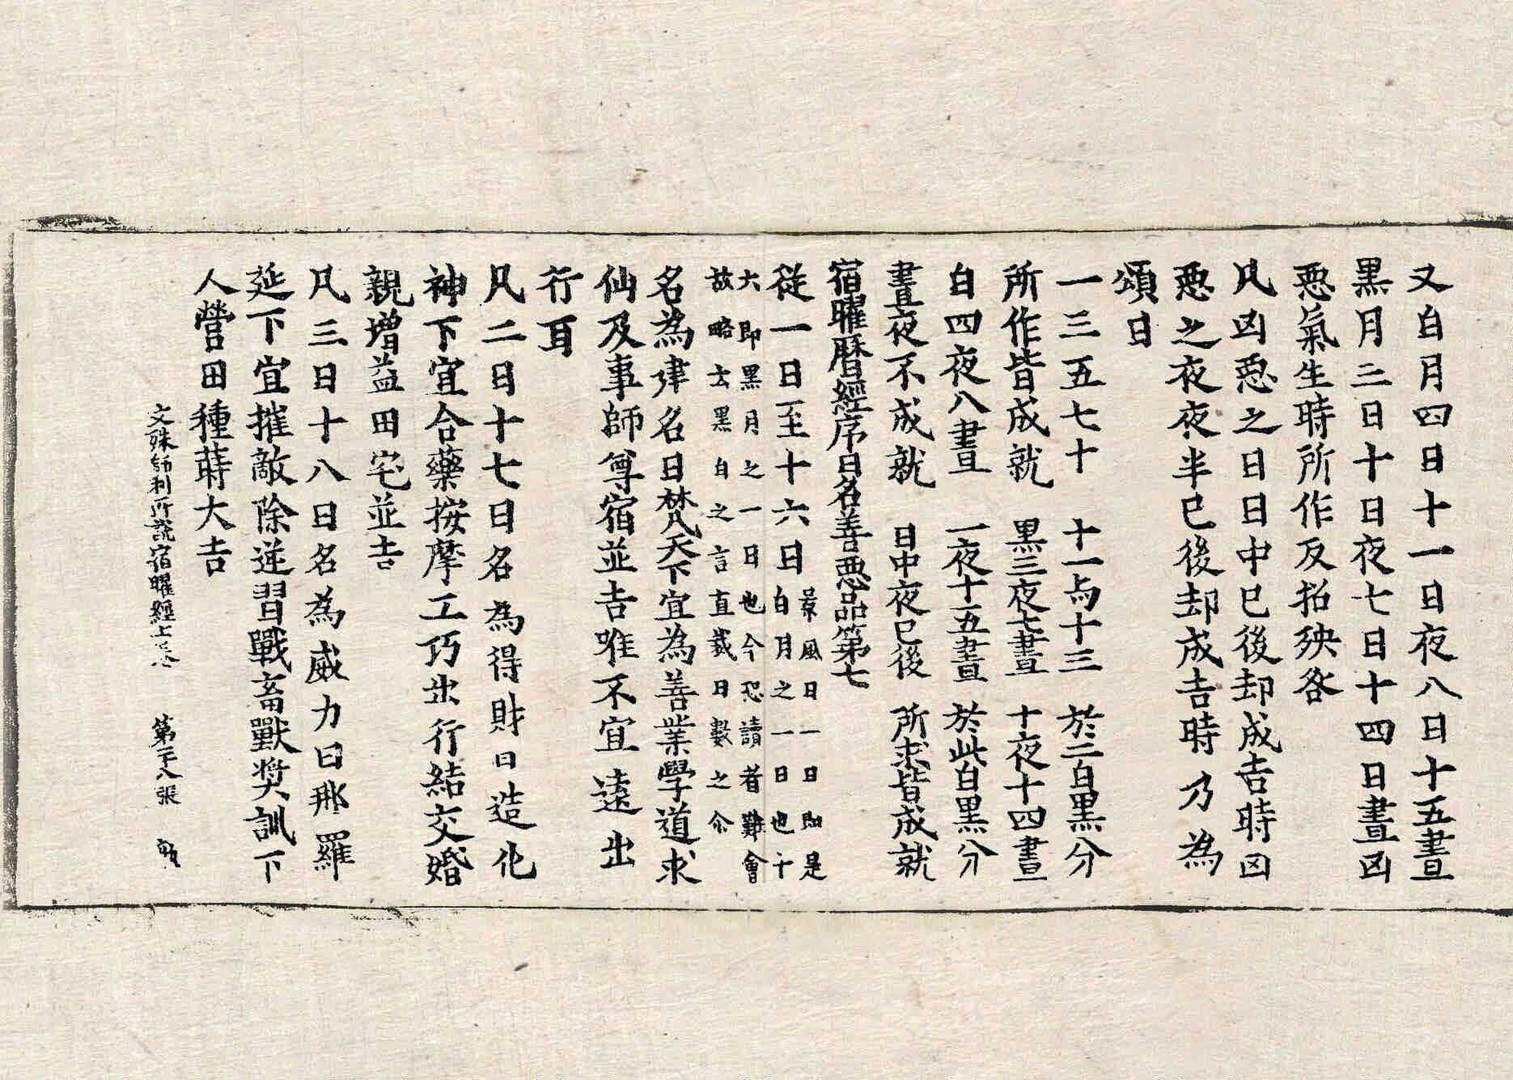 又白月四日十一日夜八日十五晝
黑月三日十日夜七日十四日晝凶
惡氣生時所作反招殃咎
凡凶惡之日日中已後却成吉時凶
惡之夜夜半已後却成吉時乃為
頌曰
一三五七十　十一与十三　於二白黑分
所作皆成就　黑三夜七晝　十夜十四晝
白四夜八晝　一夜十五晝　於此白黑分
晝夜不成就　日中夜已後　所求皆成就
宿曜曆經序日名善惡品第七
從一日至十六日
景風日一日即是
白月之一日也十
六即黑月之一日也今恐讀者難會
故略去黑白之言直截日數之尒
名為建名日梵天下宜為善業學道求
仙及事師尊宿並吉唯不宜遠出
行耳
凡二日十七日名為得財日造化
神下宜合藥按摩工巧出行結交婚
親增益田宅並吉
凡三日十八日名為威力日那羅
延下宜摧敵除逆習戰畜獸奖訓下
人營田種蒔大吉
文殊師利所說宿曜經上卷　第二十八張